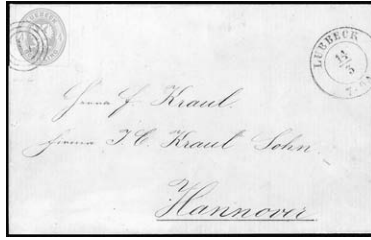 LUBECK
14
3
7-8
Herrn F. Kraul.
Firma J. C. Kraul Sohn.
Hannover.